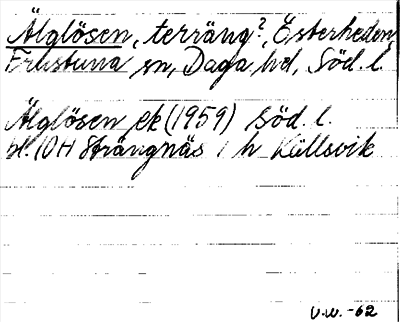 Älglösen, terräng?, Österheden,
Frustuna sn, Daga hd, Söd. l.
Älglösen ek (1959) Söd. l.
bl. 10H Strängnäs / h Källsvik
V.W. -62